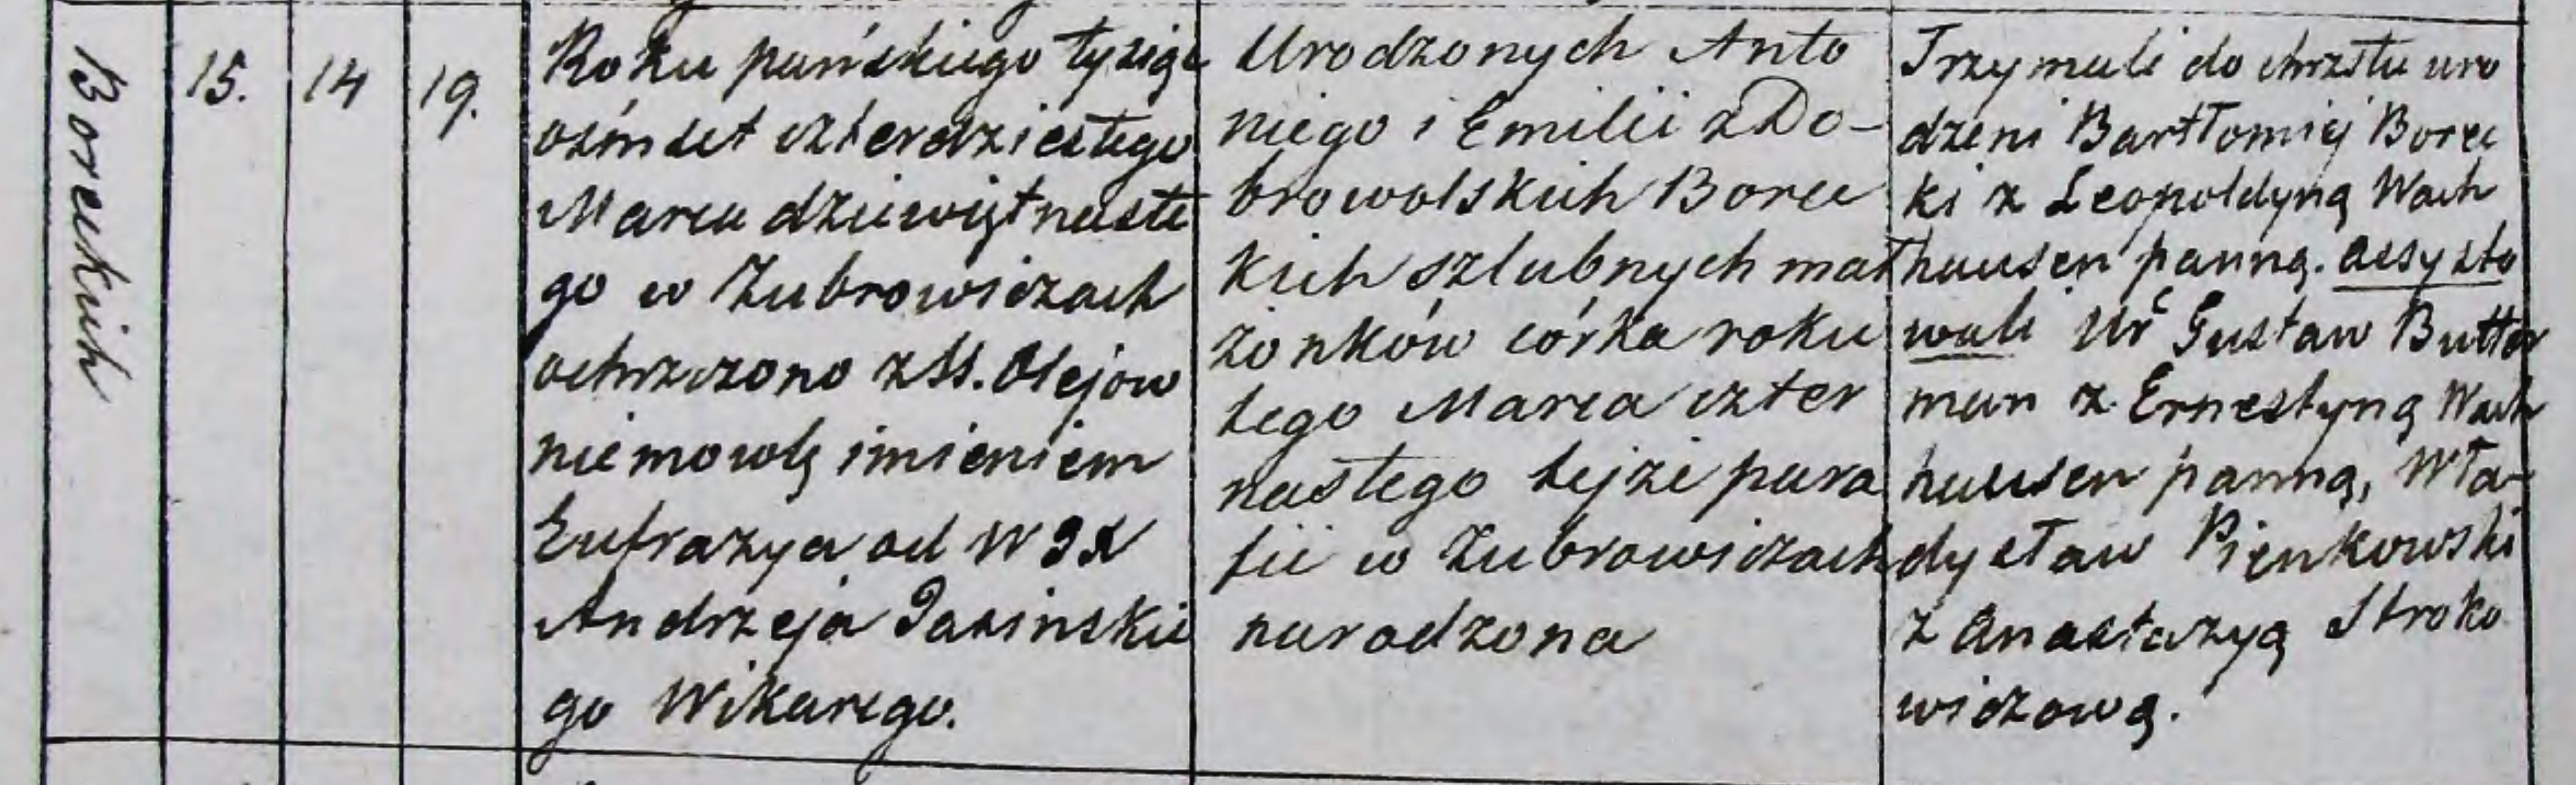 Boreckich
15.
14
19.
Roku pańskiego tysiąc
ośmset czterdziestego
Marca dziewiętnaste
go w Żubrowiczach
ochrzczono z SS. Olejow
niemowlę imieniem
Eufrazya od W JX
Andrzeja Jasinskie
go Wikarego.
Urodzonych Anto
niego i Emilii z Do-
browolskich Borec
kich szlubnych mał
żonków córka roku
tego Marca czter
nastego tejże para
fii w Żubrowiczach
narodzona
Trzymali do chrzstu uro
dzeni Bartłomiej Borec
ki z Leopoldyną Wach
hausen panną. assysto
wali Ur Gustaw Butter
man z Ernestyną Wach
hausen panną, Wła-
dysław Pienkowski
z Anastazyą Stroko
wiczową.